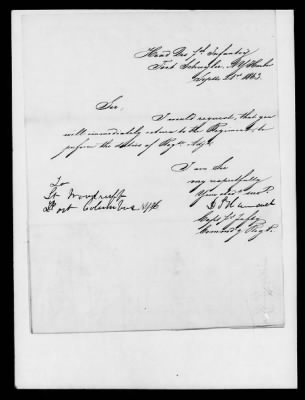 Head Qrs 7th Infantry
Fort Schuyler, N.Y. Harbor
Septr 21st 1863.
Sir,
I would request, that you
will immediately return to the Regiment, to
perform the duties of Regtl Adjt.
I am Sir
very respectfully
Your obdt servt.
D P Hancock
Capt 7th Infty
Commdg Regt.
To
Lt Woodruff
Fort Columbus NYH